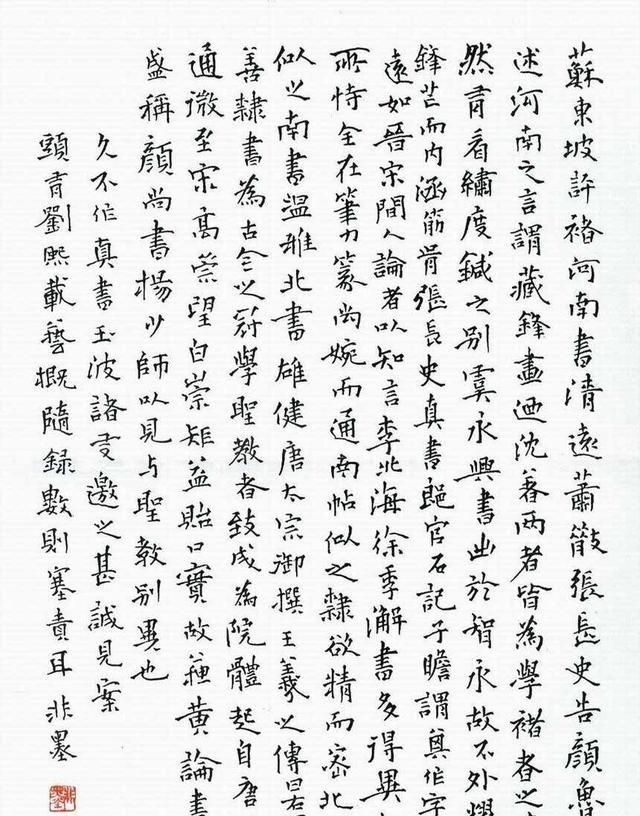 蘇東坡評褚河南書清遠蕭散張長史告顏魯
述河南之言謂藏鋒畫迺沈著兩者皆為學褚者之
然有看繡度鍼之別虞永興書出於智永故不外燿
鋒芒而內涵筋骨張長史真書郎官石記子瞻謂作字
遠如晉宋間人論者以知言李北海徐季海書多得異
所恃全在筆力篆尚婉而通南帖似之隸欲精而密北
似之南書溫雅北書雄健唐太宗御撰王羲之傳曰
善隸書為古今之冠學聖教者致成為院體起自唐
通微至宋高崇望白崇矩益貽口實故蘇黃論書
盛稱顏尚書楊少師以見与聖教別異也
久不作真書玉波諸邀之甚誠見案
頭有劉熙載藝概隨錄數則塞責耳非墨